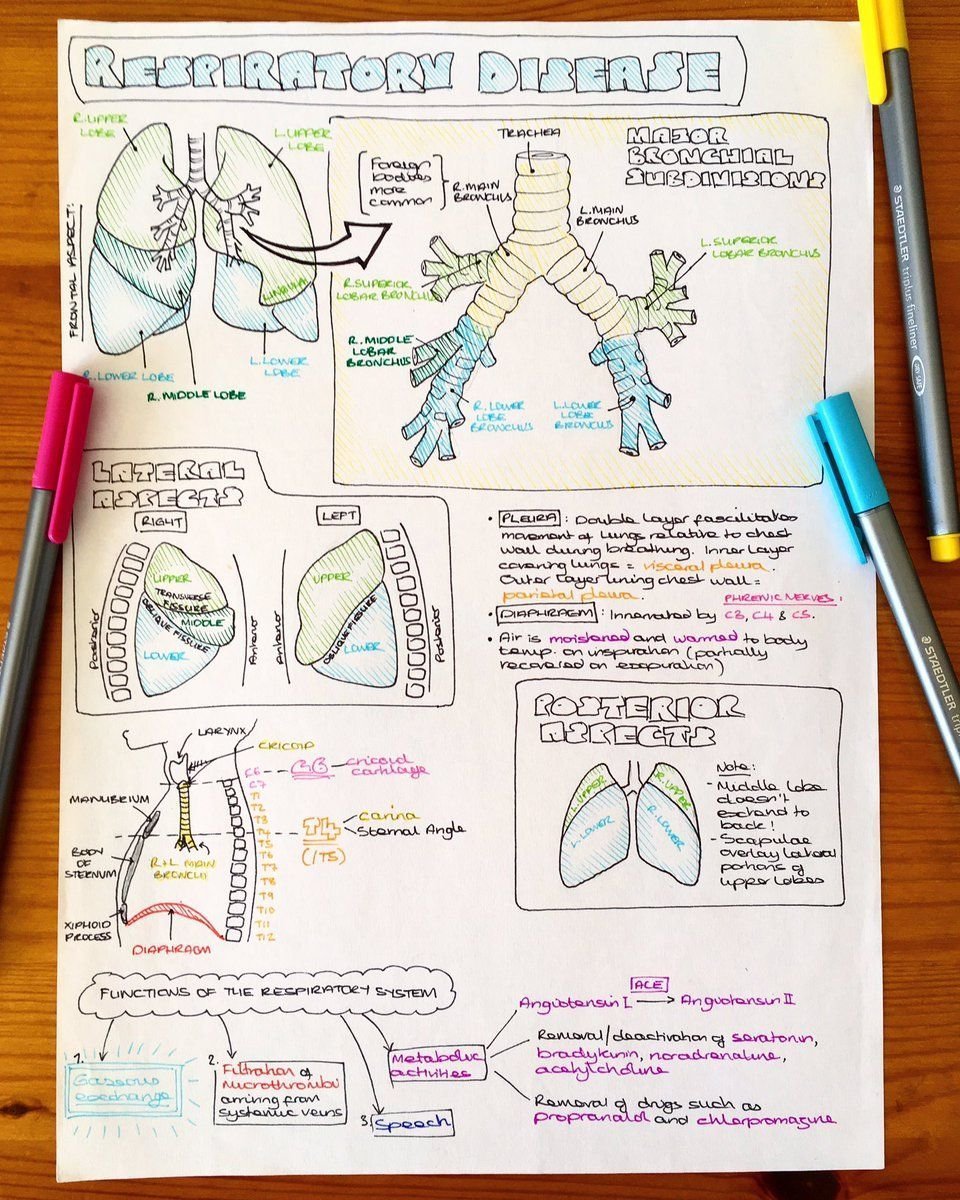 RESPIRATORY DISEASE
R.UPPER
LOBE
L.UPPER
LOBE
FRONTAL ASPECT:
LINGULAR
R.LOWER LOBE
L.LOWER
LOBE
R.MIDDLE LOBE
MAJOR
BRONCHIAL
SUBDIVISIONS
TRACHEA
Foreign
bodies
more
common
R.MAIN
BRONCHUS
L.MAIN
BRONCHUS
L.SUPERIOR
LOBAR BRONCHUS
R.SUPERIOR
LOBAR BRONCHUS
R.MIDDLE
LOBAR
BRONCHUS
R.LOWER
LOBE
BRONCHUS
L.LOWER
LOBE
BRONCHUS
LATERAL
ASPECTS
RIGHT
LEFT
Posterior
UPPER
TRANSVERSE
FISSURE
MIDDLE
OBLIQUE FISSURE
LOWER
Anterior
Anterior
UPPER
OBLIQUE FISSURE
LOWER
Posterior
• PLEURA: Double layer fascilitates
movement of lungs relative to chest
wall during breathing. Inner layer
covering lungs = visceral pleura.
Outer layer lining chest wall =
parietal pleura.
PHRENIC NERVES:
• DIAPHRAGM: Innervated by C3, C4 & C5.
• Air is moistened and warmed to body
temp. on inspiration (partially
recovered on expiration)
LARYNX
CRICOID
C6
C7
T1
T2
T3
T4
T5
T6
T7
T8
T9
T10
T11
T12
C6 – cricoid
cartilage
T4
(/T5)
carina
Sternal Angle
MANUBRIUM
BODY
OF
STERNUM
R+L MAIN
BRONCHI
XIPHOID
PROCESS
DIAPHRAGM
POSTERIOR
ASPECTS
L.UPPER
R.UPPER
L.LOWER
R.LOWER
Note:
- Middle lobe
doesn't
extend to
back!
- Scapulae
overlay lateral
portions of
upper lobes
FUNCTIONS OF THE RESPIRATORY SYSTEM
1.
Gaseous
exchange
2.
Filtration of
microthrombi
arriving from
systemic veins
3.
Speech
Metabolic
activities
ACE
Angiotensin I → Angiotensin II
Removal/deactivation of seratonin,
bradykinin, noradrenaline,
acetylcholine
Removal of drugs such as
propranolol and chlorpromazine
STAEDTLER triplus fineliner
DRY SAFE
STAEDTLER trip